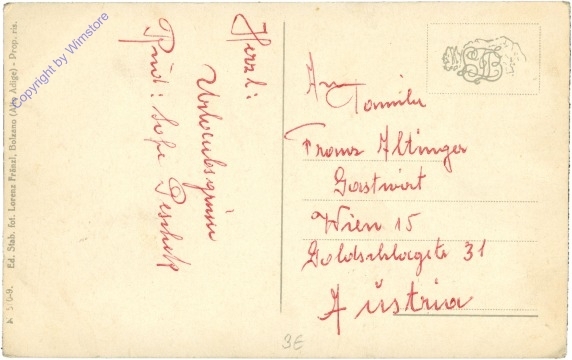 Herzl:
Urlaubsgrüsse
An
Familie
Franz Altinger
Gastwirt
Wien 15
Goldschlagstr 31
Austria
Ed. Stab. fot. Lorenz Fränzl, Bolzano (Alto Adige) - Prop. ris.
Copyright by Wimstore
3€